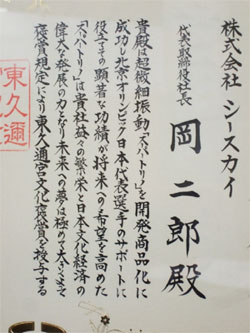 株式会社 シースカイ
代表取締役社長
岡 二郎殿
貴殿は超微細振動「スパトリノ」を開発商品化に
成功し北京オリンピック日本代表選手のサポートに
役立てその顕著な功績が将来への希望を高めた
「スパトリノ」は貴社益々の繁栄と日本文化経済の
偉大な発展の力となり未来への夢は極めて大きいよって
褒賞規定により東久邇宮文化褒賞を授与する
東久邇